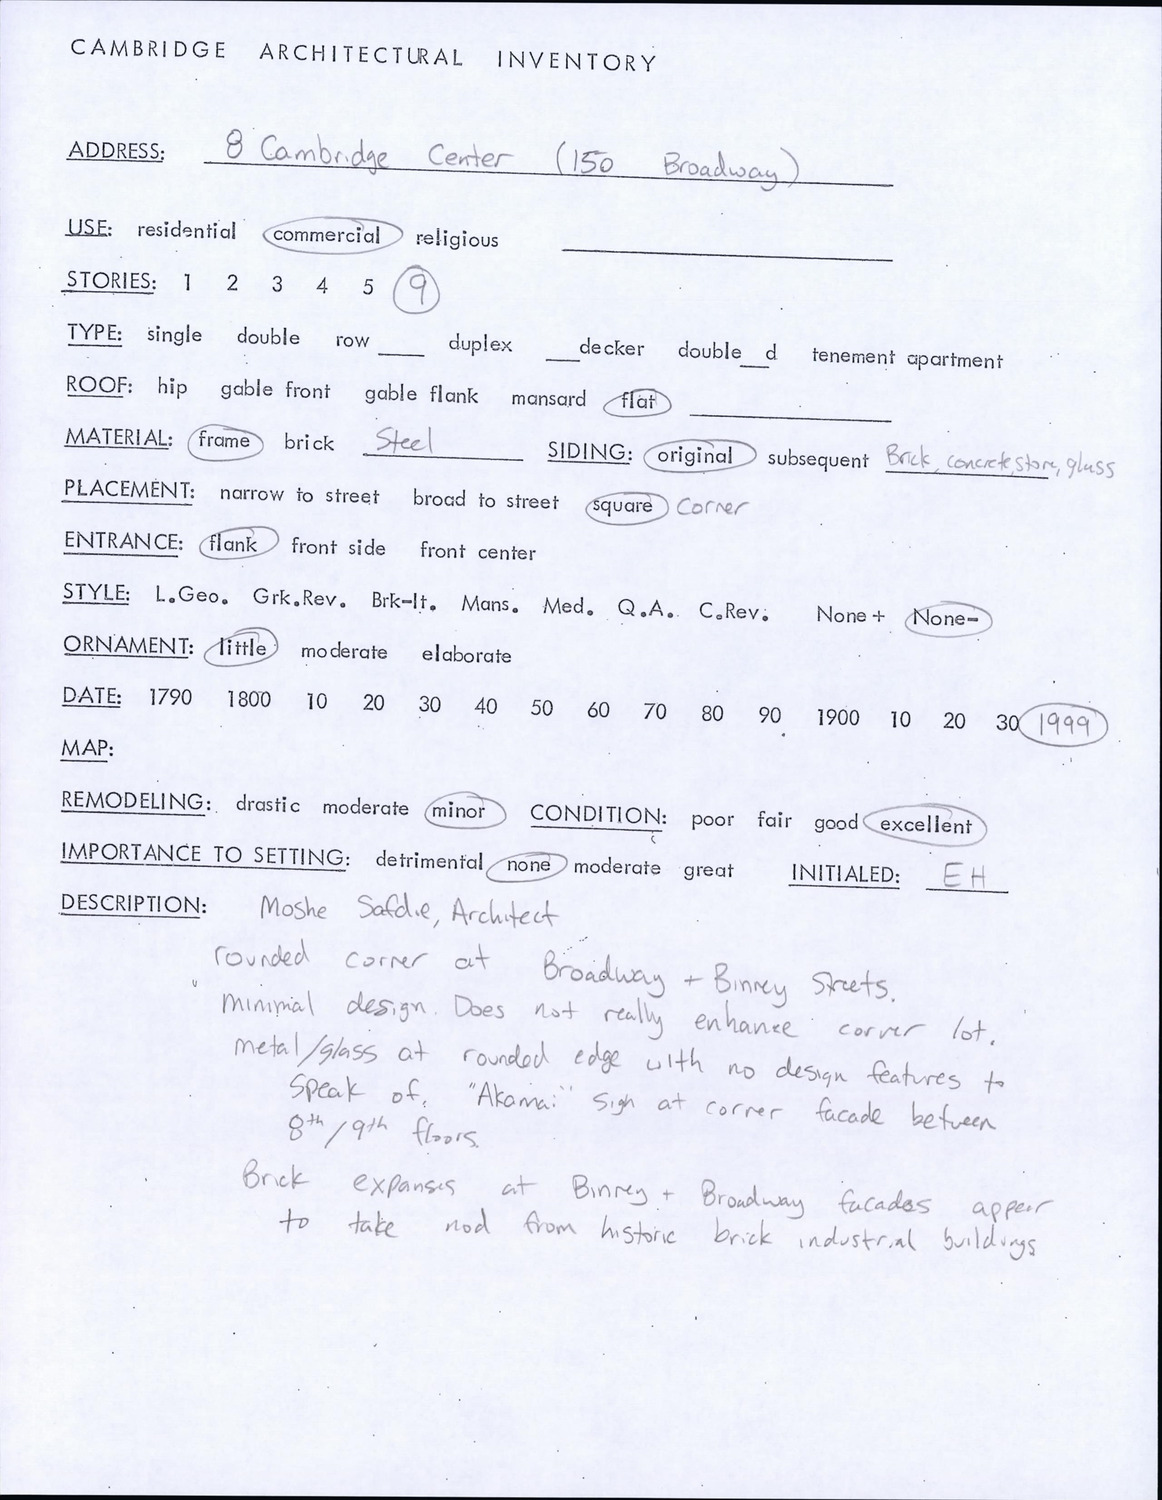 CAMBRIDGE ARCHITECTURAL INVENTORY
ADDRESS: 8 Cambridge Center (150 Broadway)
USE: residential commercial religious
STORIES: 1 2 3 4 5 9
TYPE: single double row ___ duplex ___decker double___d tenement apartment
ROOF: hip gable front gable flank mansard flat
MATERIAL: frame brick Steel SIDING: original subsequent Brick, concrete, stone, glass
PLACEMENT: narrow to street broad to street square Corner
ENTRANCE: flank front side front center
STYLE: L.Geo. Grk.Rev. Brk-It. Mans. Med. Q.A. C.Rev. None+ None-
ORNAMENT: little moderate elaborate
DATE: 1790 1800 10 20 30 40 50 60 70 80 90 1900 10 20 30 1999
MAP:
REMODELING: drastic moderate minor CONDITION: poor fair good excellent
IMPORTANCE TO SETTING: detrimental none moderate great INITIALED: EH
DESCRIPTION: Moshe Safdie, Architect
rounded corner at Broadway + Binney Streets.
minimal design. Does not really enhance corner lot.
metal/glass at rounded edge with no design features to
speak of. "Akamai" sign at corner facade between
8th/9th floors.
Brick expanses at Binney + Broadway facades appear
to take nod from historic brick industrial buildings